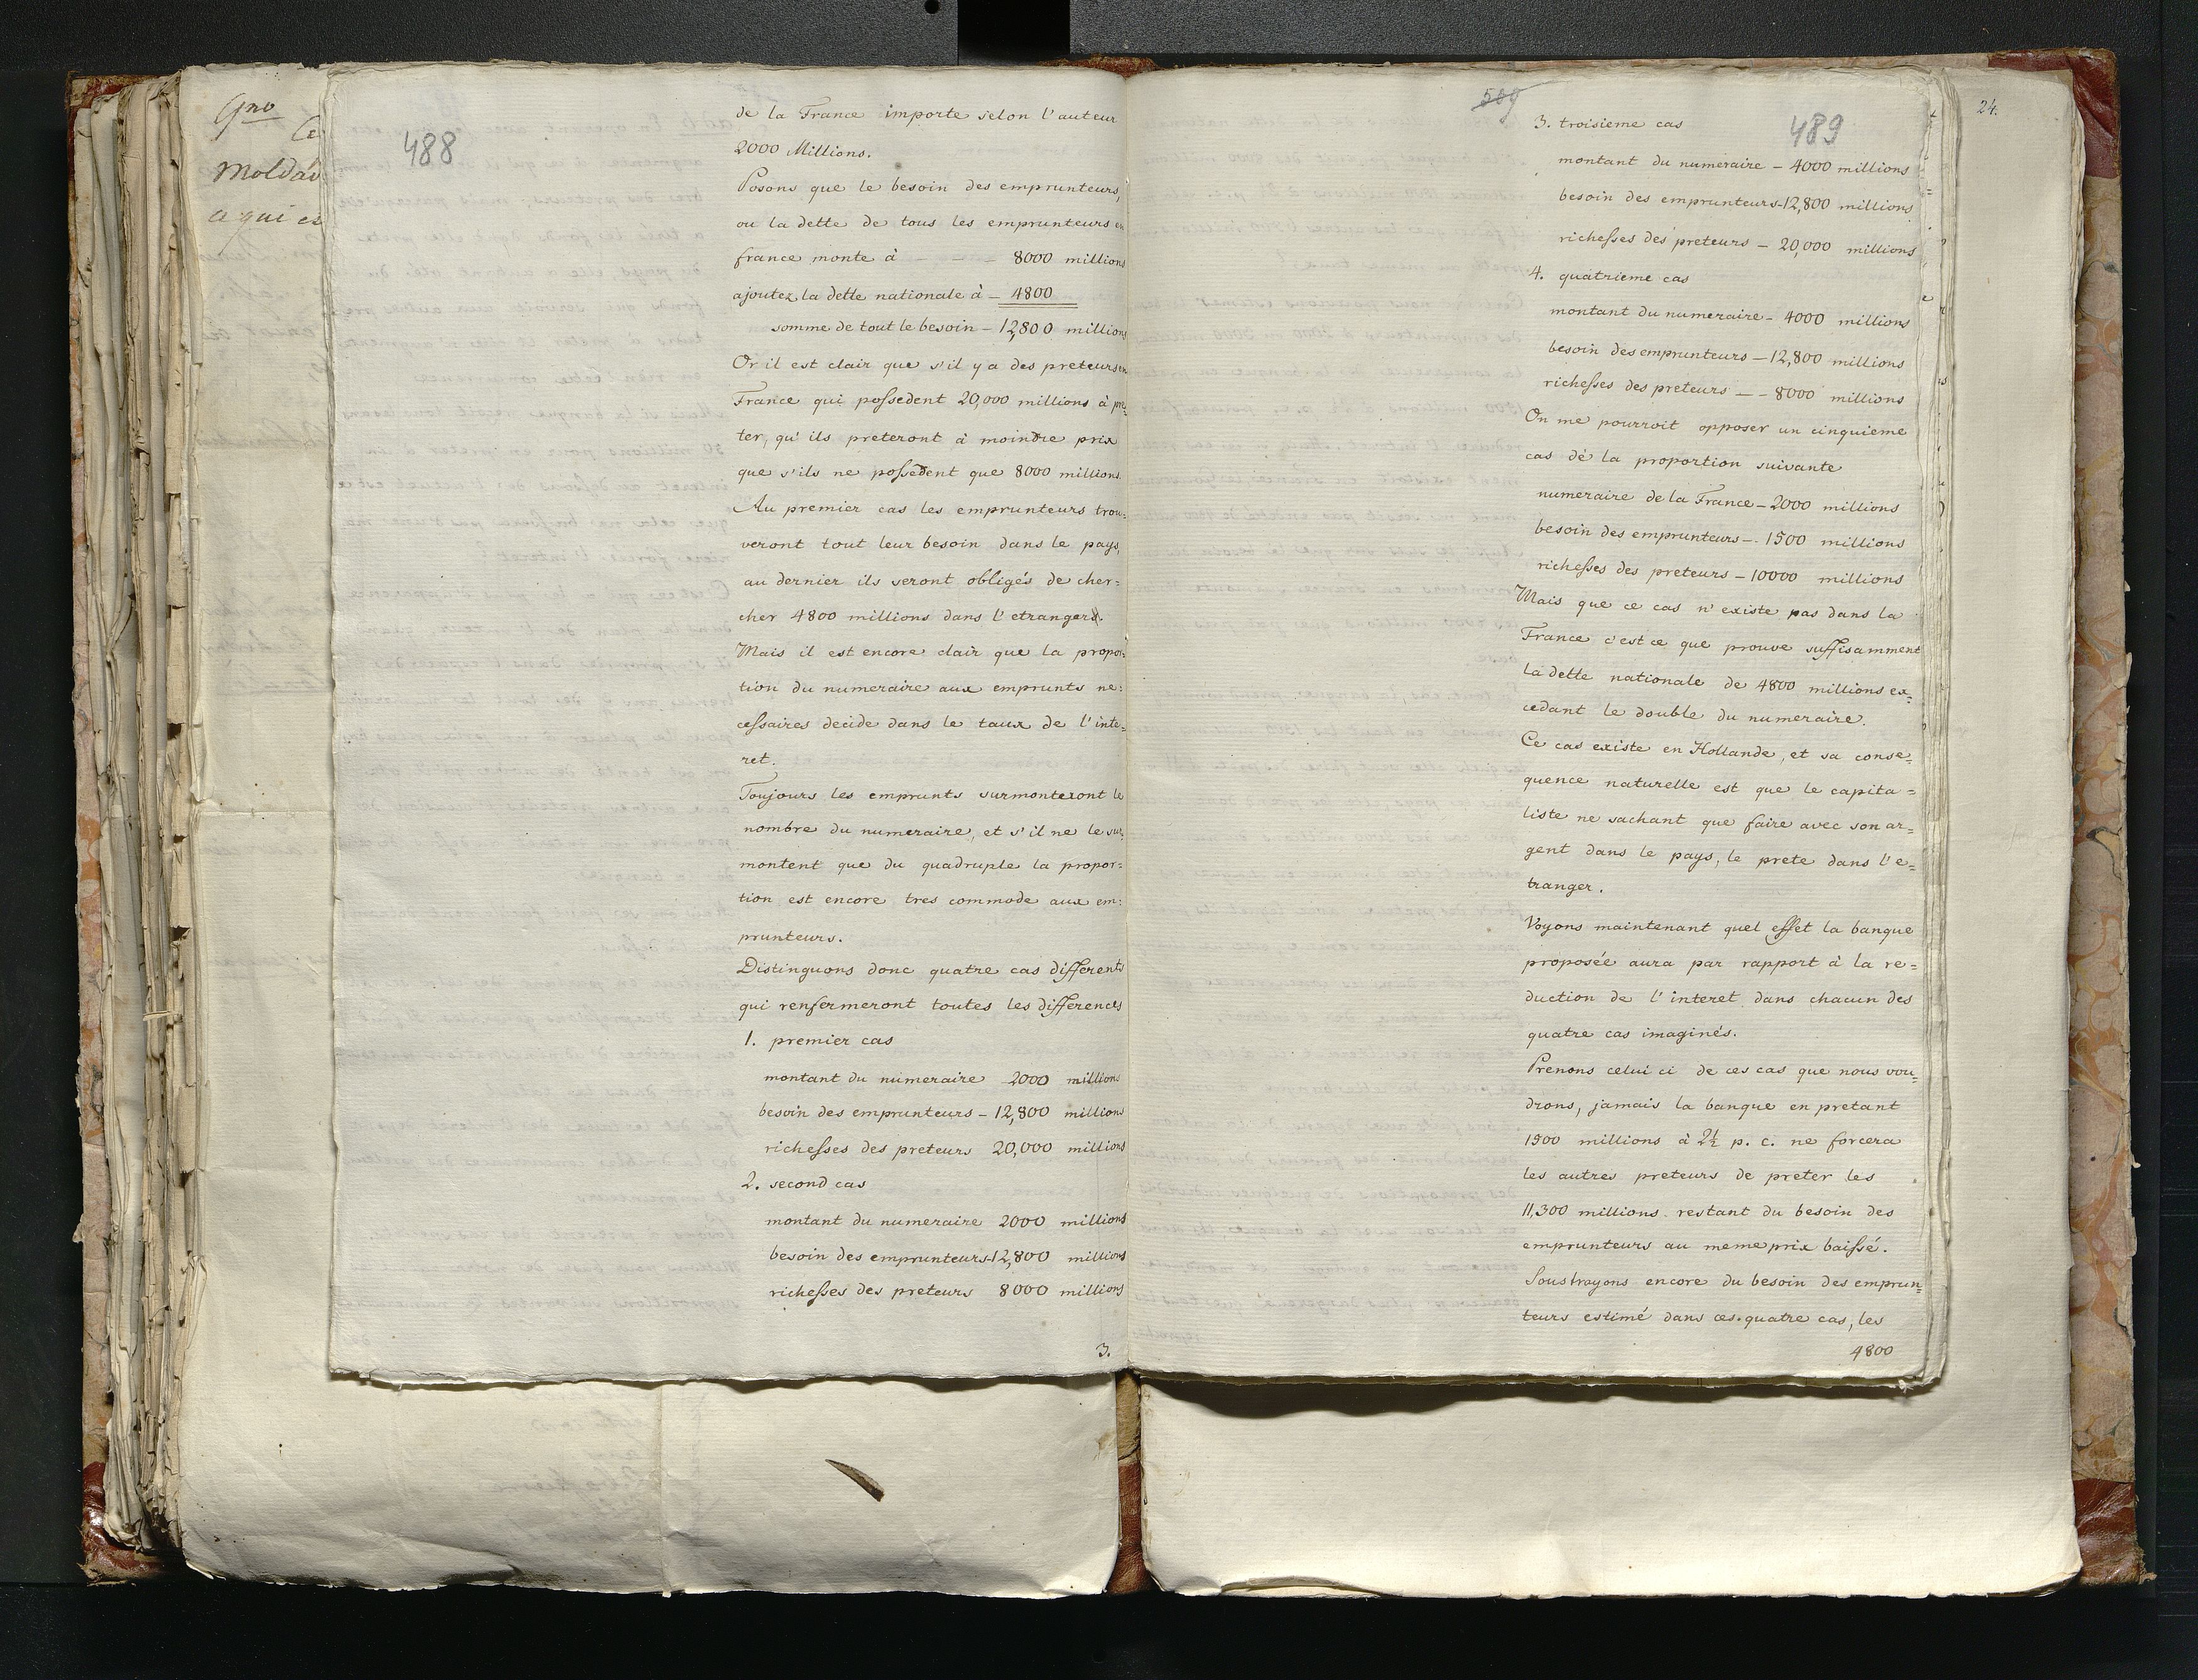 488
de la France importe selon l'auteur
2000 Millions.
Posons que le besoin des emprunteurs,
ou la dette de tous les emprunteurs en
france monte à - - - 8000 millions
ajoutez la dette nationale à - 4800
somme de tout le besoin - 12,800 millions
Or il est clair que s'il y a des preteurs en
France qui possedent 20,000 millions à pre=
ter, qu'ils preteront à moindre prix
que s'ils ne possedent que 8000 millions.
Au premier cas les emprunteurs trou=
veront tout leur besoin dans le pays,
au dernier ils seront obligés de cher=
cher 4800 millions dans l'etranger.
Mais il est encore clair que la propor=
tion du numeraire aux emprunts ne=
cessaires decide dans le taux de l'inte=
ret.
Toujours les emprunts surmonteront le
nombre du numeraire, et s'il ne le sur=
montent que du quadruple la propor=
tion est encore tres commode aux em=
prunteurs.
Distinguons donc quatre cas differents
qui renfermeront toutes les differences
1. premier cas
montant du numeraire 2000 millions
besoin des emprunteurs - 12,800 millions
richesses des preteurs 20,000 millions
2. second cas
montant du numeraire 2000 millions
besoin des emprunteurs - 12,800 millions
richesses des preteurs 8000 millions
3.
509
489
3. troisieme cas
montant du numeraire - 4000 millions
besoin des emprunteurs - 12,800 millions
richesses des preteurs - 20,000 millions
4. quatrieme cas
montant du numeraire - 4000 millions
besoin des emprunteurs - 12,800 millions
richesses des preteurs - - 8000 millions
On me pourroit opposer un cinquieme
cas de la proportion suivante
numeraire de la France - 2000 millions
besoin des emprunteurs - 1500 millions
richesses des preteurs - 10000 millions
Mais que ce cas n'existe pas dans la
France c'est ce que prouve suffisamment
la dette nationale de 4800 millions ex=
cedant le double du numeraire.
Ce cas existe en Hollande, et sa conse=
quence naturelle est que le capita=
liste ne sachant que faire avec son ar=
gent dans le pays, le prete dans l'e=
tranger.
Voyons maintenant quel effet la banque
proposée aura par rapport à la re=
duction de l'interet dans chacun des
quatre cas imaginés.
Prenons celui ci de ces cas que nous vou=
drons, jamais la banque en pretant
1500 millions à 2½ p. c. ne forcera
les autres preteurs de preter les
11,300 millions restant du besoin des
emprunteurs au meme prix baissé.
Soustrayons encore du besoin des emprun=
teurs estimé dans ces quatre cas, les
4800
24.
Moldav
ce qui es